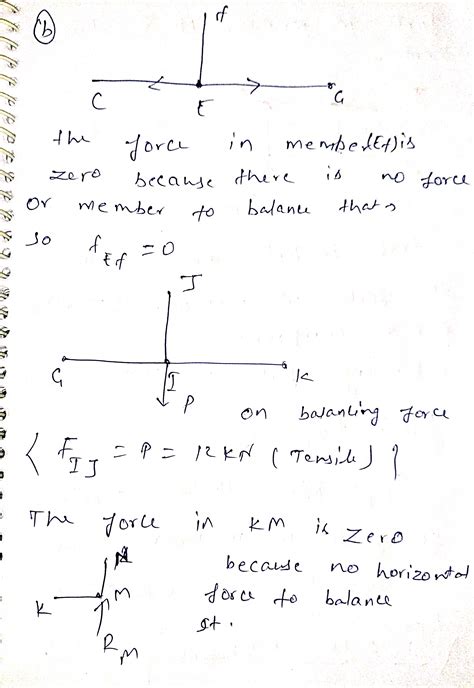 (b)
f
C E G
the force in member(Ef) is
zero because there is no force
or member to balance that
so f_Ef = 0
J
G I K
P
on balancing force
F_IJ = P = 12 kN (Tensile)
The force in KM is zero
because no horizontal
K M force to balance
R_M it.